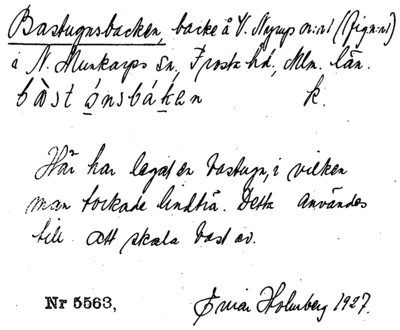 Bastugnsbacken, backe å V. Nyrup nr:ri (Rign:ri)
i N. Munkarps sn, Frosta hd, Mlm. län.
bàst ǿnsbáken k.
Här har legat en bastugn, i vilken
man torkade lindträ. Detta användes
till att skala bast av.
Nr 5563, Einar Holmberg 1927.